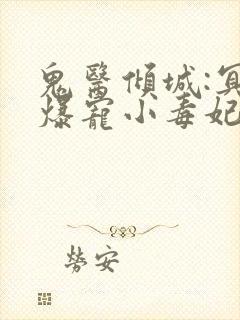 鬼醫傾城:冥
爆寵小毒妃
勞安